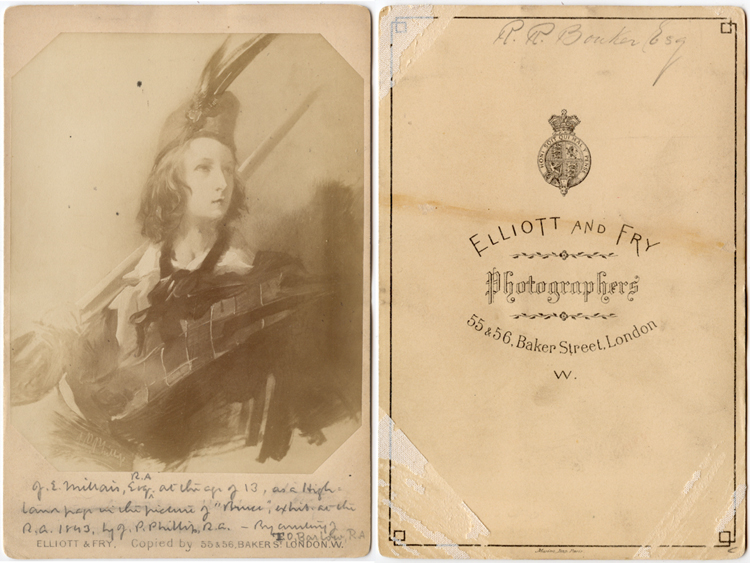 J. E. Millais, Esq, R.A at the age of 13, as a High-
land page in the picture of "Bruce", exhib. at the
R.A. 1843, by J. P. Phillip, R.A. – By courtesy of
T.O. Barlow, R.A
ELLIOTT & FRY. Copied by 55 & 56, BAKER ST LONDON. W.
R. R. Bowker Esq
HONI SOIT QUI MAL Y PENSE
ELLIOTT AND FRY
Photographers
55 & 56, Baker Street, London
W.